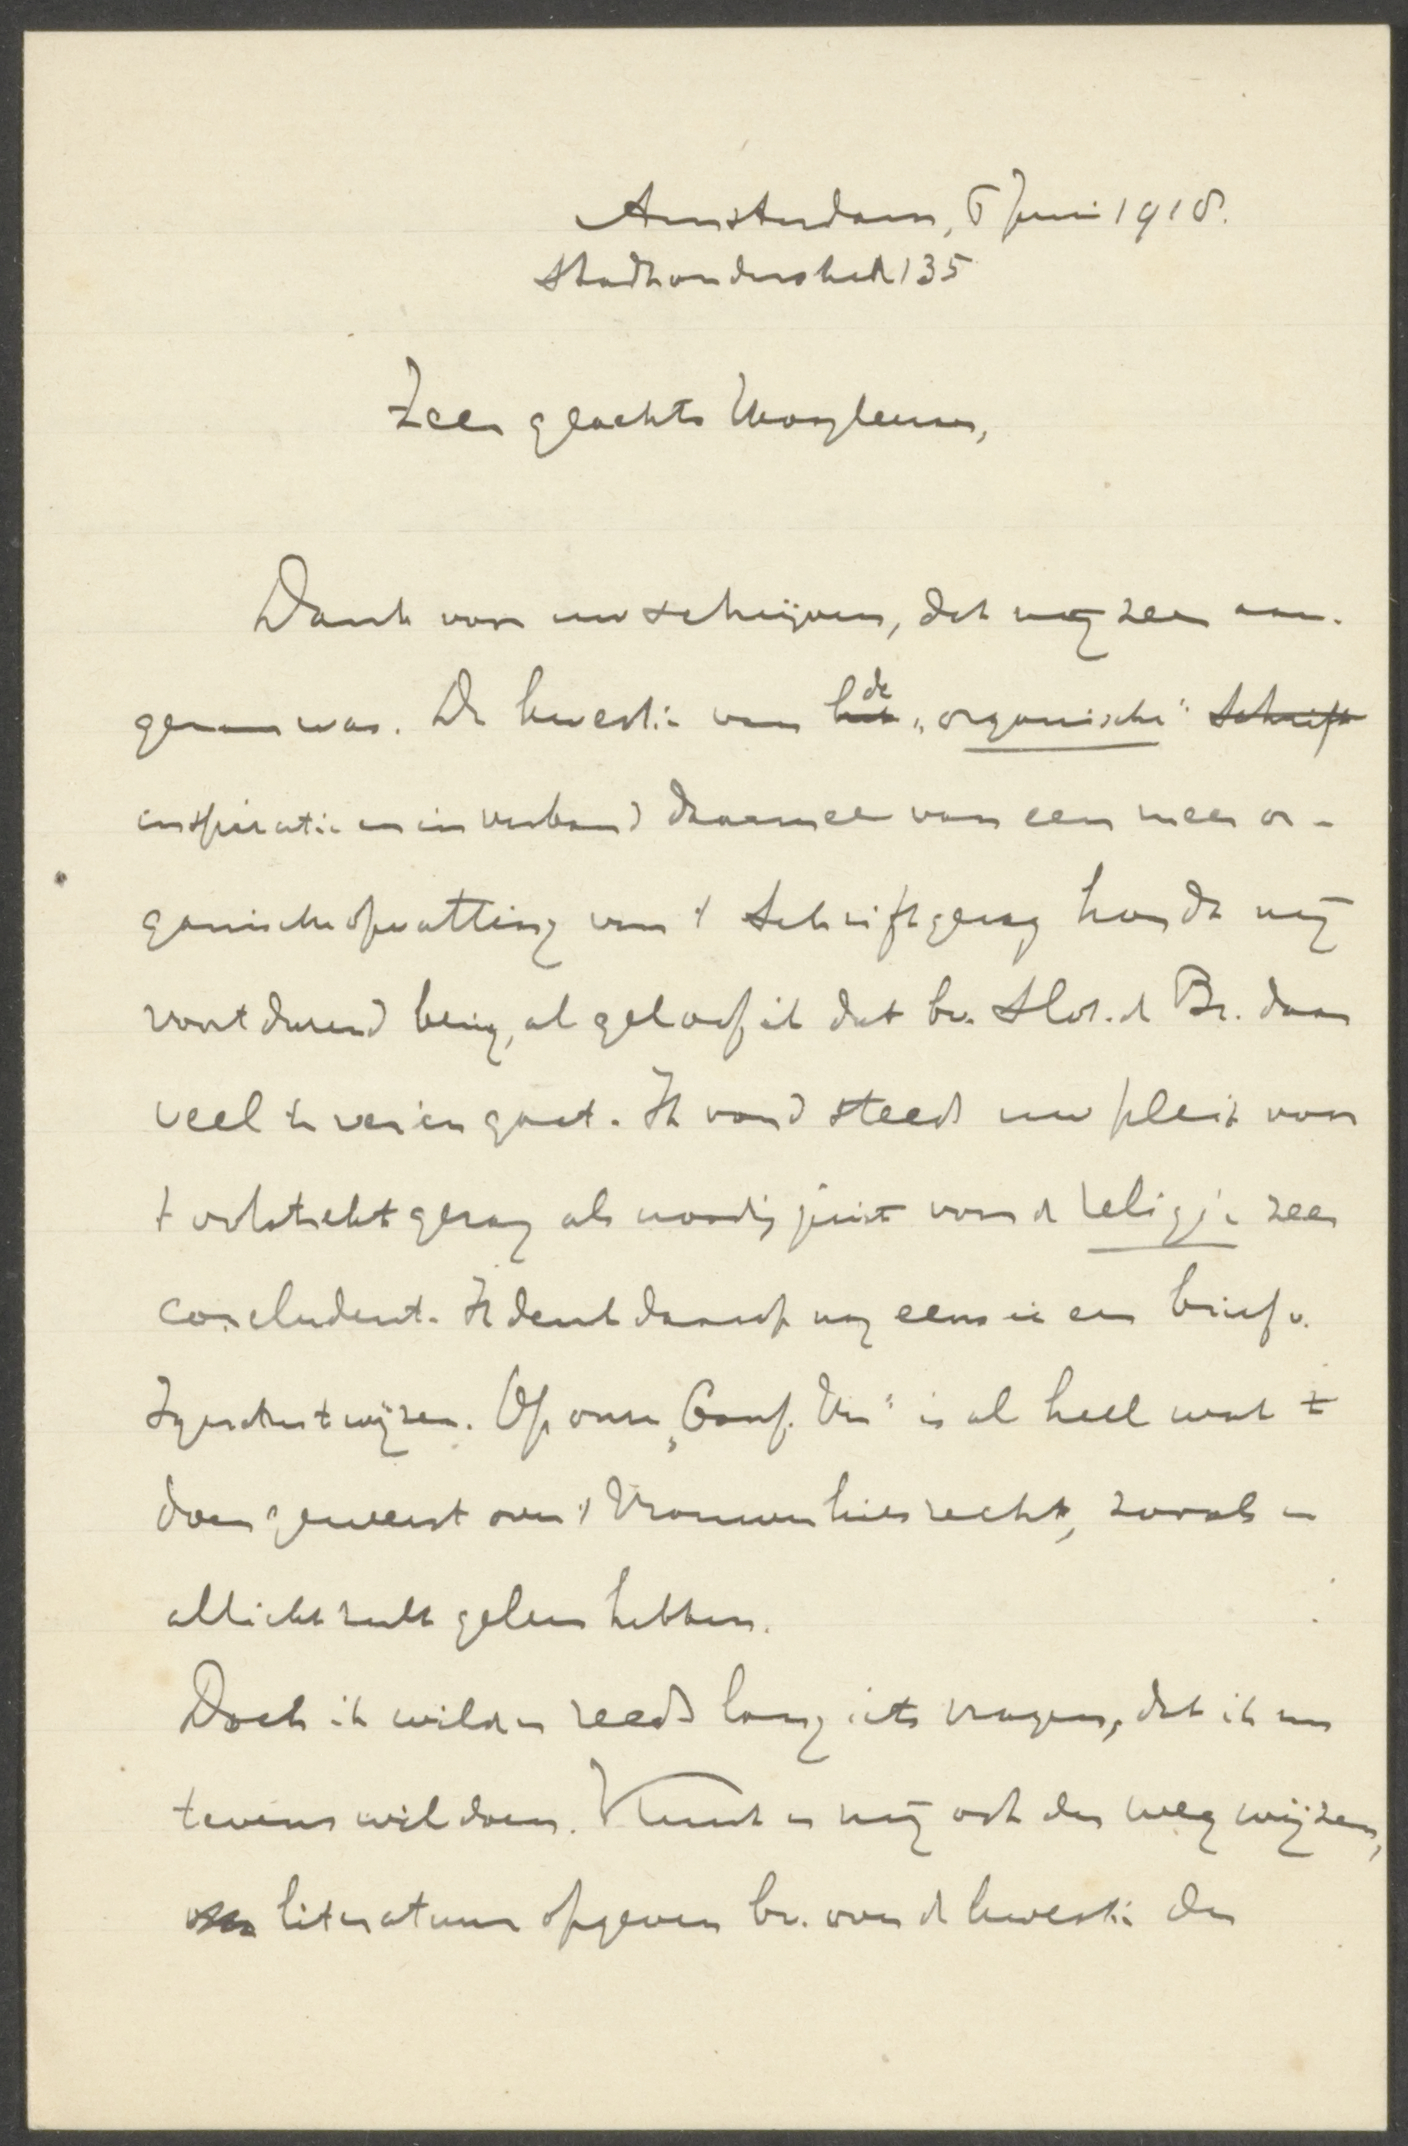 Amsterdam, 6 Juni 1918.
Stadhouderskade 135
Zeer geachte
Dank voor uw schrijven, dat mij zeer aan-
genaam was. De kwestie van de „organische"
inspiratie en in verband daarmee van een meer or-
ganische opvatting van 't Schriftgezag houdt mij
voortdurend bezig, al geloof ik dat br. d Br. daar
veel te ver in gaat. Ik vond steeds uw pleit voor
't volstrekt gezag als noodig juist voor d religie zeer
concludent. Ik denk daarop nog eens in een brief v.
te wijzen. Op onze „Conf. " is al heel wat te
doen geweest over 't Vrouwenkiesrecht, zooals u
allicht zult gelezen hebben.
Doch ik wilde u reeds lang iets vragen, dat ik nu
tevens wil doen. Kunt u mij ook den weg wijzen,
literatuur opgeven bv. over d kwestie der